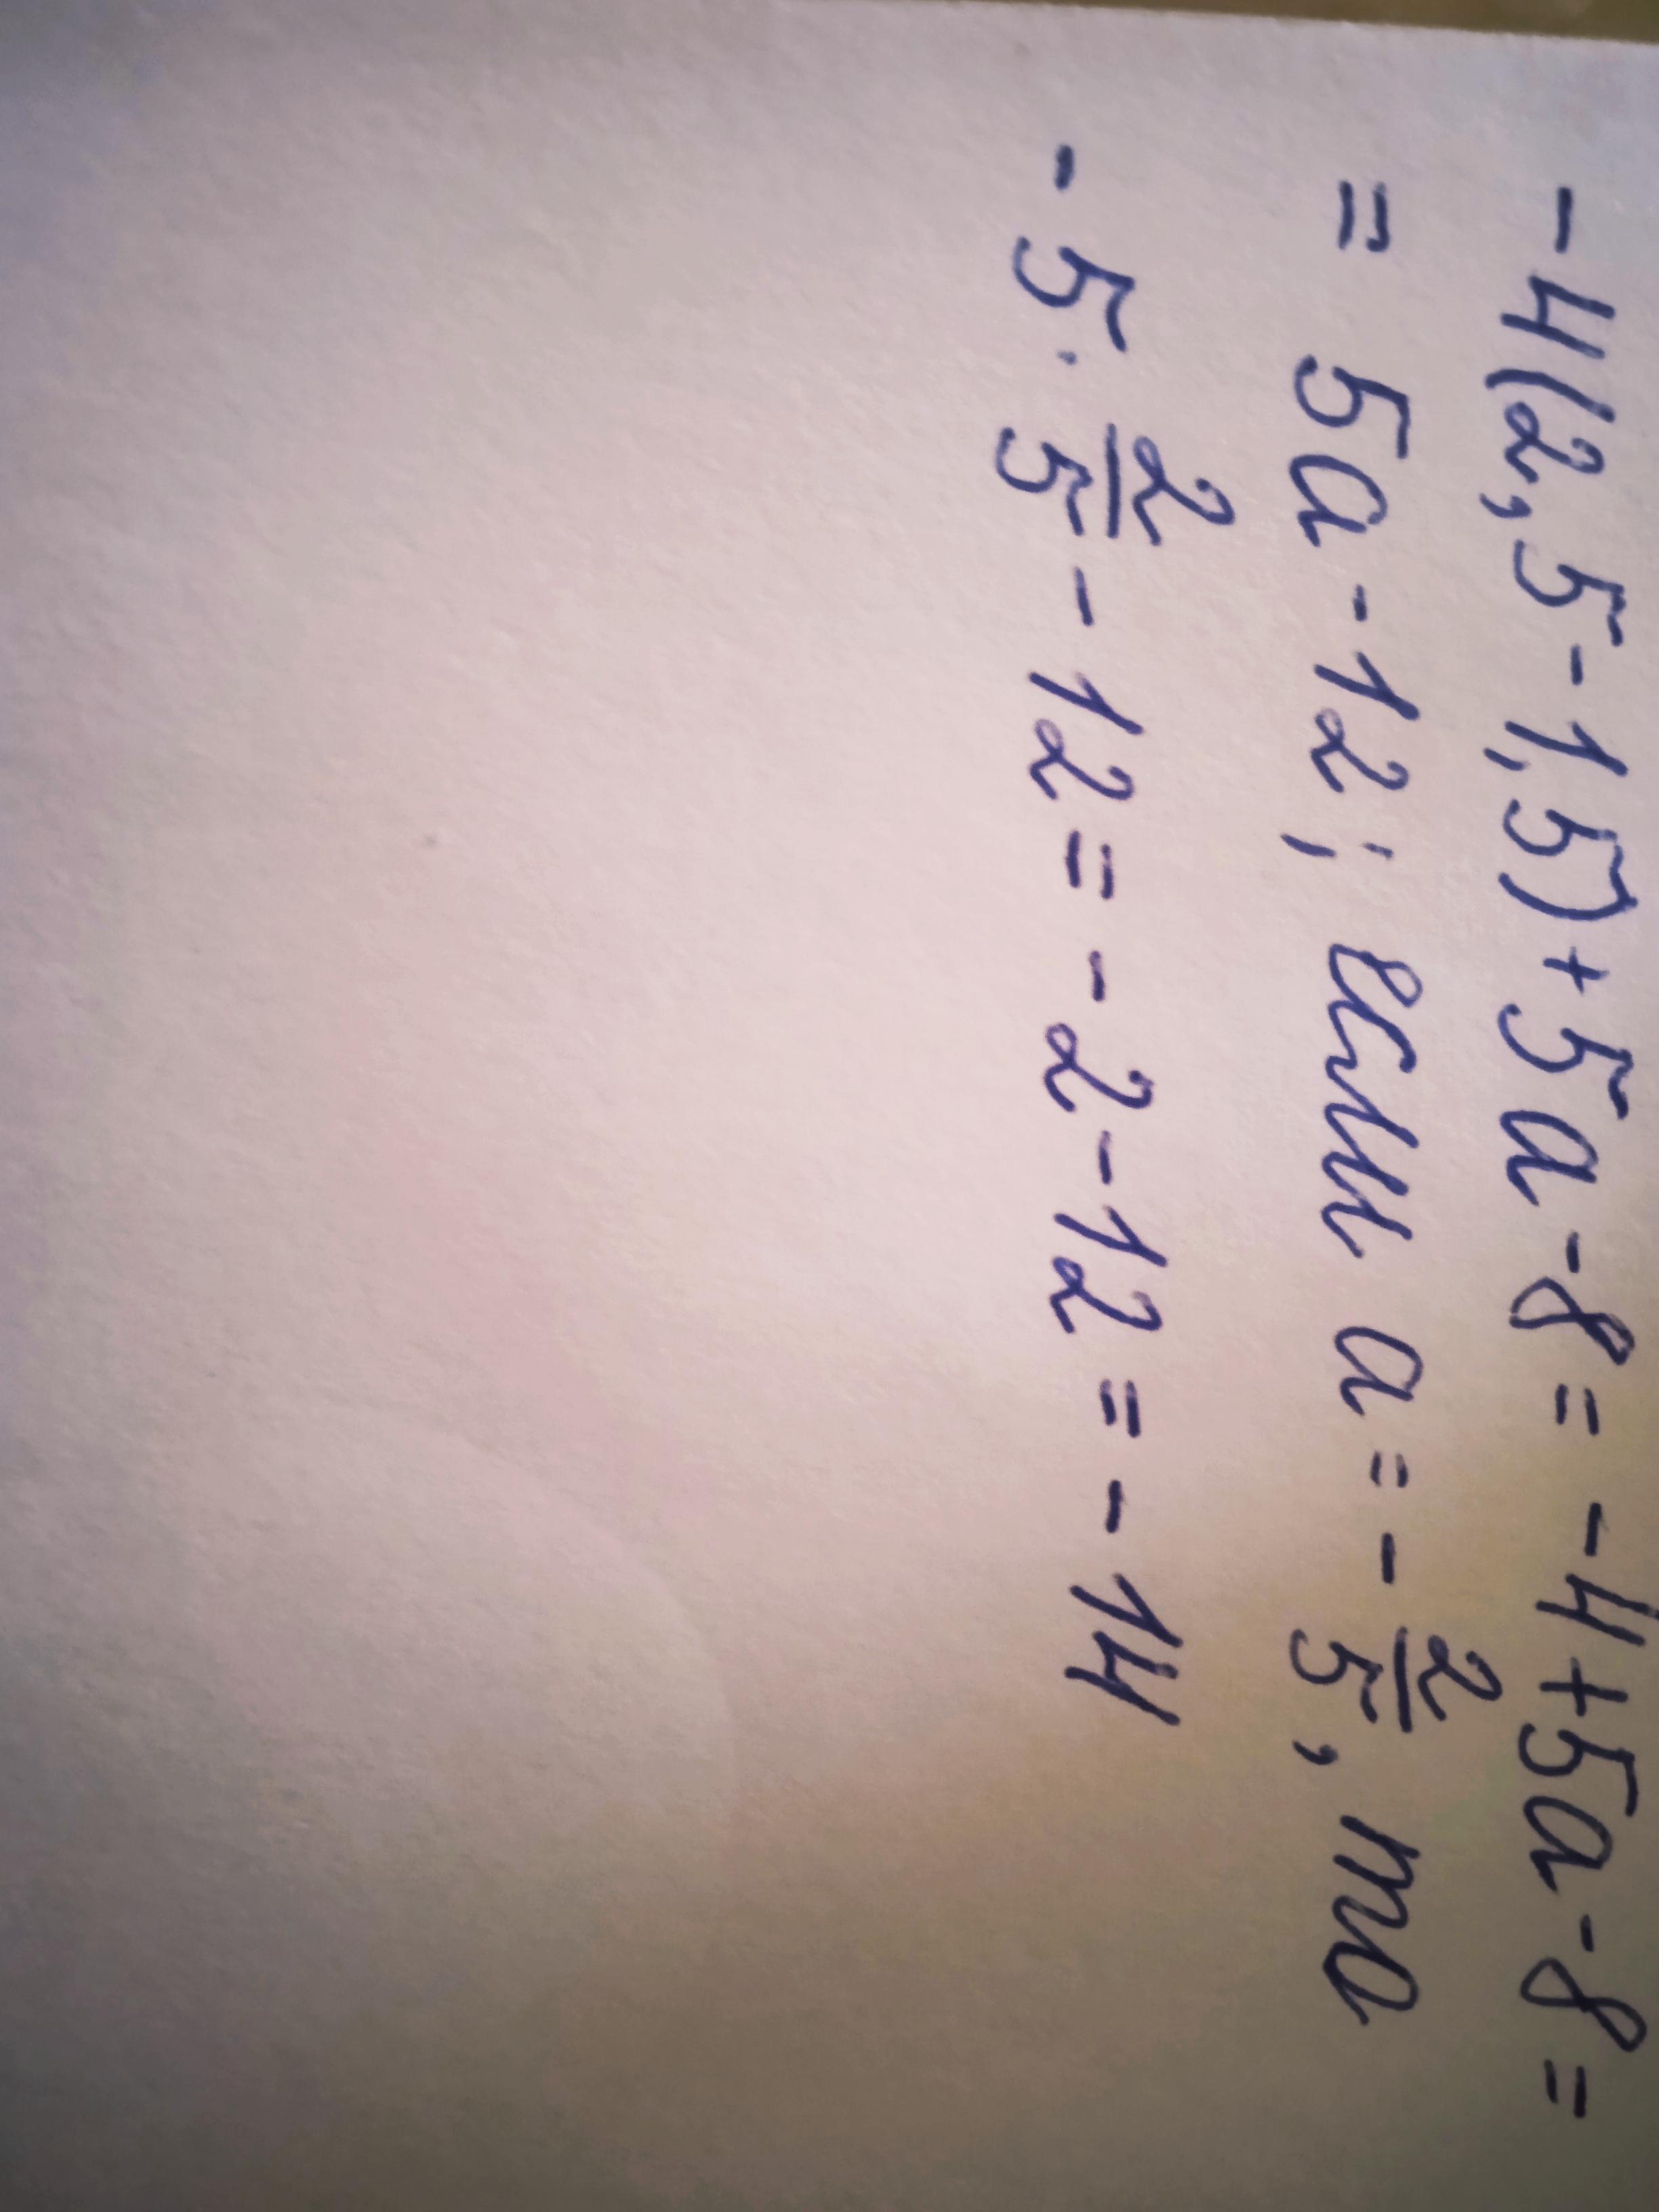 -4(2,5-1,5)+5a-8=-4+5a-8=
=5a-12; если a=-2/5, то
-5·2/5-12=-2-12=-14